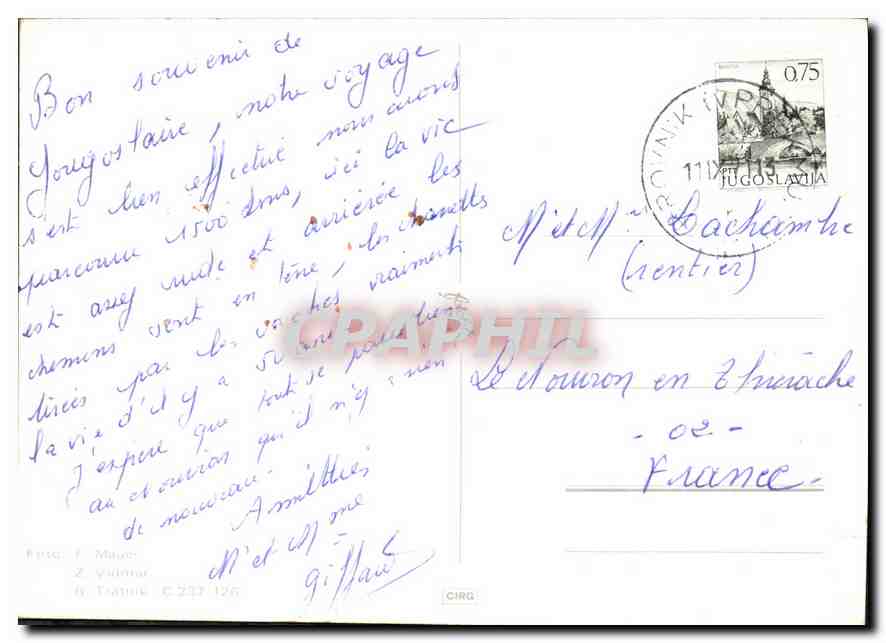 Bon souvenir de
Yougoslavie, notre voyage
s'est bien effectué nous avons
parcouru 1500 kms, ici la vie
est assez rude et arriérée les
chemins sont en terre, les charrettes
tirées par les vaches vraiment
la vie d'il y a 50 ans
J'espère que tout se passe bien
au Nouvion qu'il n'y a rien
de nouveau.
Amitiés
Mr et Mme
Foto: F.
Z. Vidmar
C 237 126
CIRG
0,75
PTT
JUGOSLAVIJA
11 IX 71 13
Mr et Mme Lachambre
(rentier)
Le Nouvion en Thiérache
- 02 -
France.
CPAPHIL